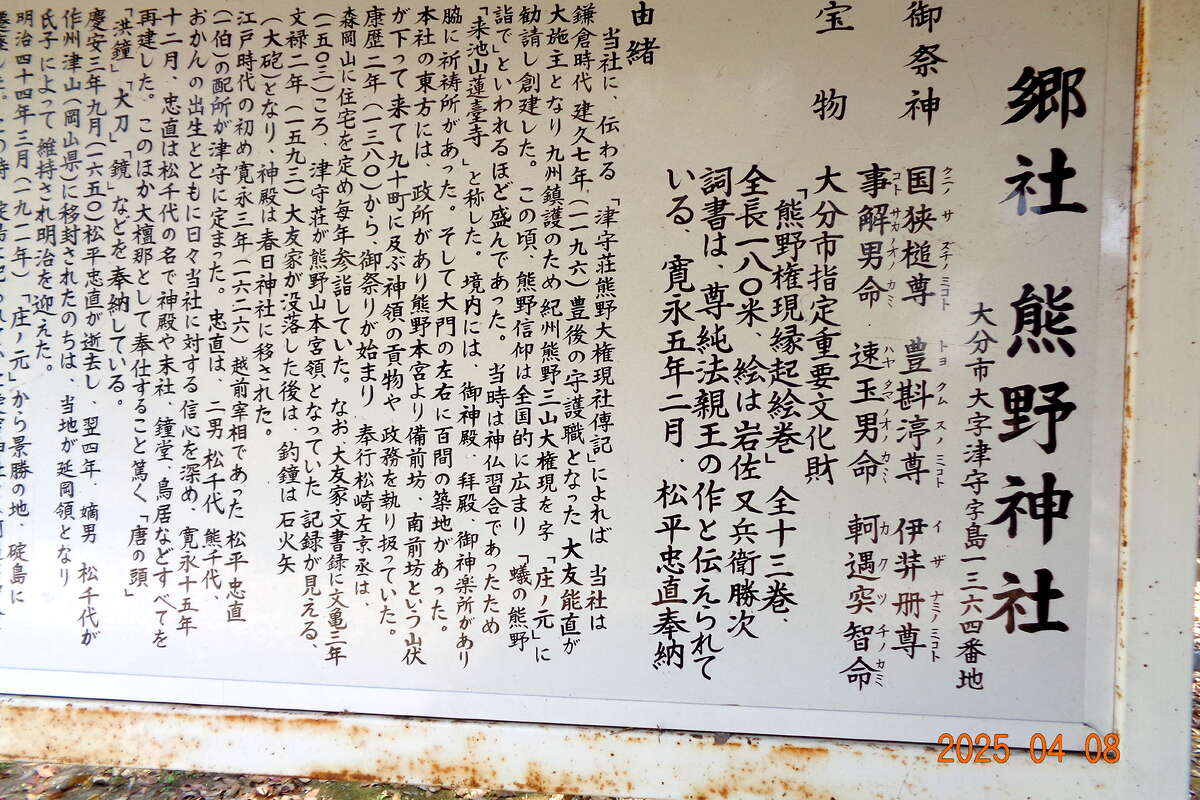 郷社 熊野神社
大分市大字津守字島一三六四番地
御祭神
国狭槌尊 豊斟渟尊 伊弉册尊
クニノサ ズチノミコト トヨクムスノミコト イザナミノミコト
事解男命 速玉男命 軻遇突智命
コトサカノオノカミ ハヤタマノオノカミ カクツチノカミ
宝物
大分市指定重要文化財
「熊野権現縁起絵巻」 全十三巻、
全長一八〇米、絵は岩佐又兵衛勝次
詞書は、尊純法親王の作と伝えられて
いる、寛永五年二月、松平忠直奉納
由緒
当社に、伝わる 「津守荘熊野大権現社傳記」によれば 当社は
鎌倉時代 建久七年、(一一九六)豊後の守護職となった 大友能直が
大施主となり 九州鎮護のため 紀州熊野三山大権現を 字「庄ノ元」に
勧請し創建した。この頃、熊野信仰は全国的に広まり 「蟻の熊野
詣で」といわれるほど盛んであった。 当時は神仏習合であったため
「来池山蓮臺寺」と称した。境内には、御神殿、拜殿、御神楽所があり
脇に祈祷所があった。そして大門の左右に百間の築地があった。
本社の東方には、政所があり熊野本宮より備前坊、南前坊という山伏
が下って来て九十町に及ぶ神領の貢物や、政務を執り扱っていた。
康歴二年(一三八〇)から、御祭りが始まり、奉行松崎左京亟は、
森岡山に住宅を定め毎年参詣していた。なお、大友家文書録に文亀三年
(一五〇三)ころ、津守荘が熊野山本宮領となっていた 記録が見える、
文禄二年(一五九三)大友家が没落した後は、釣鐘は石火矢
(大砲)となり、神殿は春日神社に移された。
江戸時代の初め 寛永三年(一六二六)越前宰相であった 松平忠直
(一伯)の配所が津守に定まった。 忠直は、二男 松千代 熊千代、
おかんの出生とともに日々当社に対する信心を深め、寛永十五年
十二月、忠直は松千代の名で神殿や末社、鐘堂、鳥居などすべてを
再建した。このほか大檀那として奉仕すること篤く、「唐の頭」
「洪鐘」「大刀」「鏡」などを奉納している。
慶安三年九月(一六五〇)松平忠直が逝去し、翌四年、嫡男 松千代が
作州津山(岡山県)に移封されたのちは、当地が延岡領となり
氏子によって維持され明治を迎えた。
明治四十四年三月(一九一一年)「庄ノ元」から景勝の地、碇島に